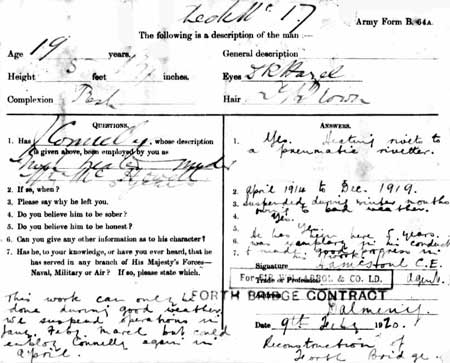 17
Army Form B. 64A.
The following is a description of the man :—
Age 19 years.
General description
Height 5 feet inches.
Eyes DK Hazel
Complexion Fresh
Hair D. Brown
QUESTIONS.
ANSWERS.
1. Has J Connelly, whose description
is given above, been employed by you as
1. Yes. Heating rivets to
a pneumatic rivetter.
2. If so, when?
2. April 1914 to Dec. 1919.
3. Please say why he left you.
3. Suspended during winter months
owing to bad weather.
4. Do you believe him to be sober?
4. Yes.
5. Do you believe him to be honest?
5. Yes.
6. Can you give any other information as to his character?
6. He has been here 5 years.
was exemplary in his conduct
7. Has he, to your knowledge, or have you ever heard, that he
has served in any branch of His Majesty's Forces—
Naval, Military or Air? If so, please state which.
7.
Signature C.E.
Trade or Profession Agent.
For SIR WM. ARROL & CO. LD.
FORTH BRIDGE CONTRACT
Dalmeny
Date 9th Feby 1920.
This work can only be
done during good weather
We suspend operations in
Jany. Feby March but could
employ Connelly again in
April.
Reconstruction of
Forth Bridge